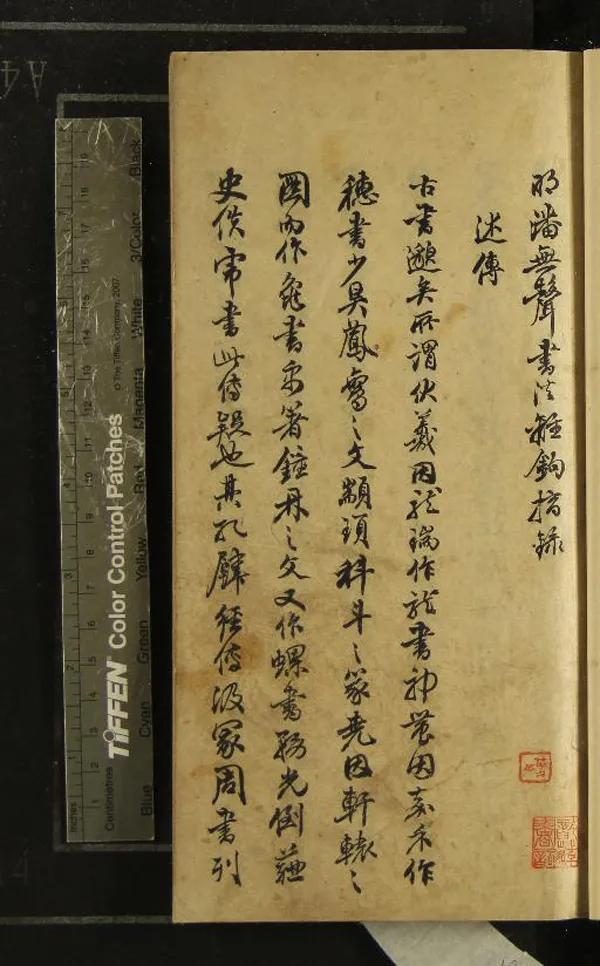 明潘無聲書法離鈎摘錄
述傳
古書邈矣所謂伏羲因龍瑞作龍書神農因嘉禾作
穗書少昊鳳之文顓頊科斗之篆堯因軒轅之
圖而作龜書禹著鐘鼎之文又作螺書務光倒薤
史佚書此傳疑也其孔壁經傳汲冢周書列
TIFFEN Color Control Patches
© The Tiffen Company, 2007
Inches
Centimetres
Blue Cyan Green Yellow Red Magenta White 3/Color Black
A4